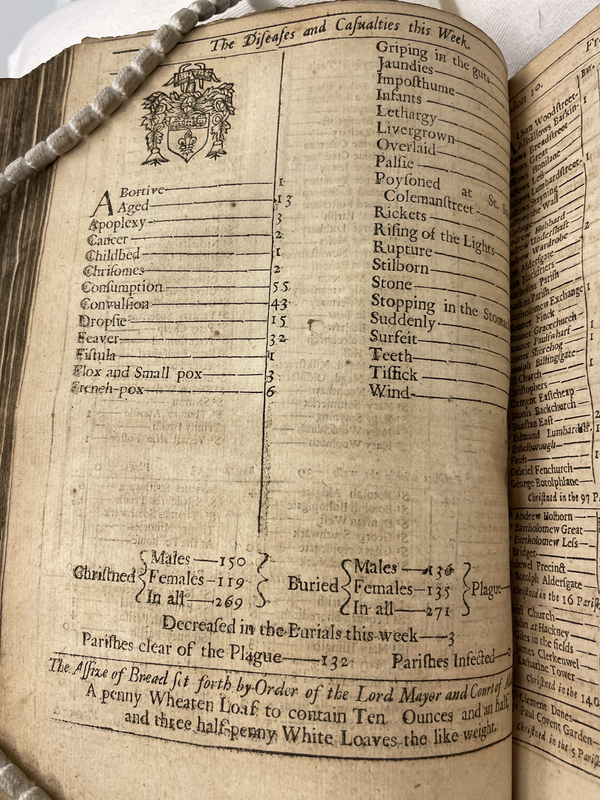 The Diſeaſes and Caſualties this Week.
ABortive 1
Aged 13
Apoplexy 3
Cancer 2
Childbed 1
Chriſomes 2
Conſumption 55
Convulſion 43
Dropſie 15
Feaver 32
Fiſtula 1
Flox and Small pox 3
French-pox 6
Griping in the guts
Jaundies
Impoſthume
Infants
Lethargy
Livergrown
Overlaid
Palſie
Poyſoned at St.
Colemanſtreet
Rickets
Riſing of the Lights
Rupture
Stilborn
Stone
Stopping in the
Suddenly
Surfeit
Teeth
Tiſſick
Wind
Chriſtned Males 150 Females 119 In all 269
Buried Males 136 Females 135 In all 271 Plague
Decreaſed in the Burials this week 3
Pariſhes clear of the Plague 132 Pariſhes Infected
The Aſſize of Bread ſet forth by Order of the Lord Mayor and Court of
A penny Wheaten Loaf to contain Ten Ounces and an half,
and three half-penny White Loaves the like weight.
Woodſtreet
Breadſtreet
Great
Lumbardſtreet
the Wall
Hubbard
Underſhaft
Wardrobe
Alderſgate
Blackfriers
Pariſh
Exchange
Finck
Gracechurch
Paulſwharf
Sherehog
Billingſgate
Church
Eaſtcheap
Backchurch
Dunſtan Eaſt
Edmund Lumbardſtr.
Ethelborough
Faith
Gabriel Fenchurch
George Botolphlane
Chriſtned in the 97
Andrew Holborn
Bartholomew Great
Bartholomew Leſs
Bridget
Bridewel Precinct
Botolph Alderſgate
Chriſtned in the 16 Pariſh
Church
John at Hackney
Giles in the fields
James Clerkenwel
Katharine Tower
Chriſtned in the 14
Clement Danes
Paul Covent Garden
Chriſtned in the 5 Pariſh